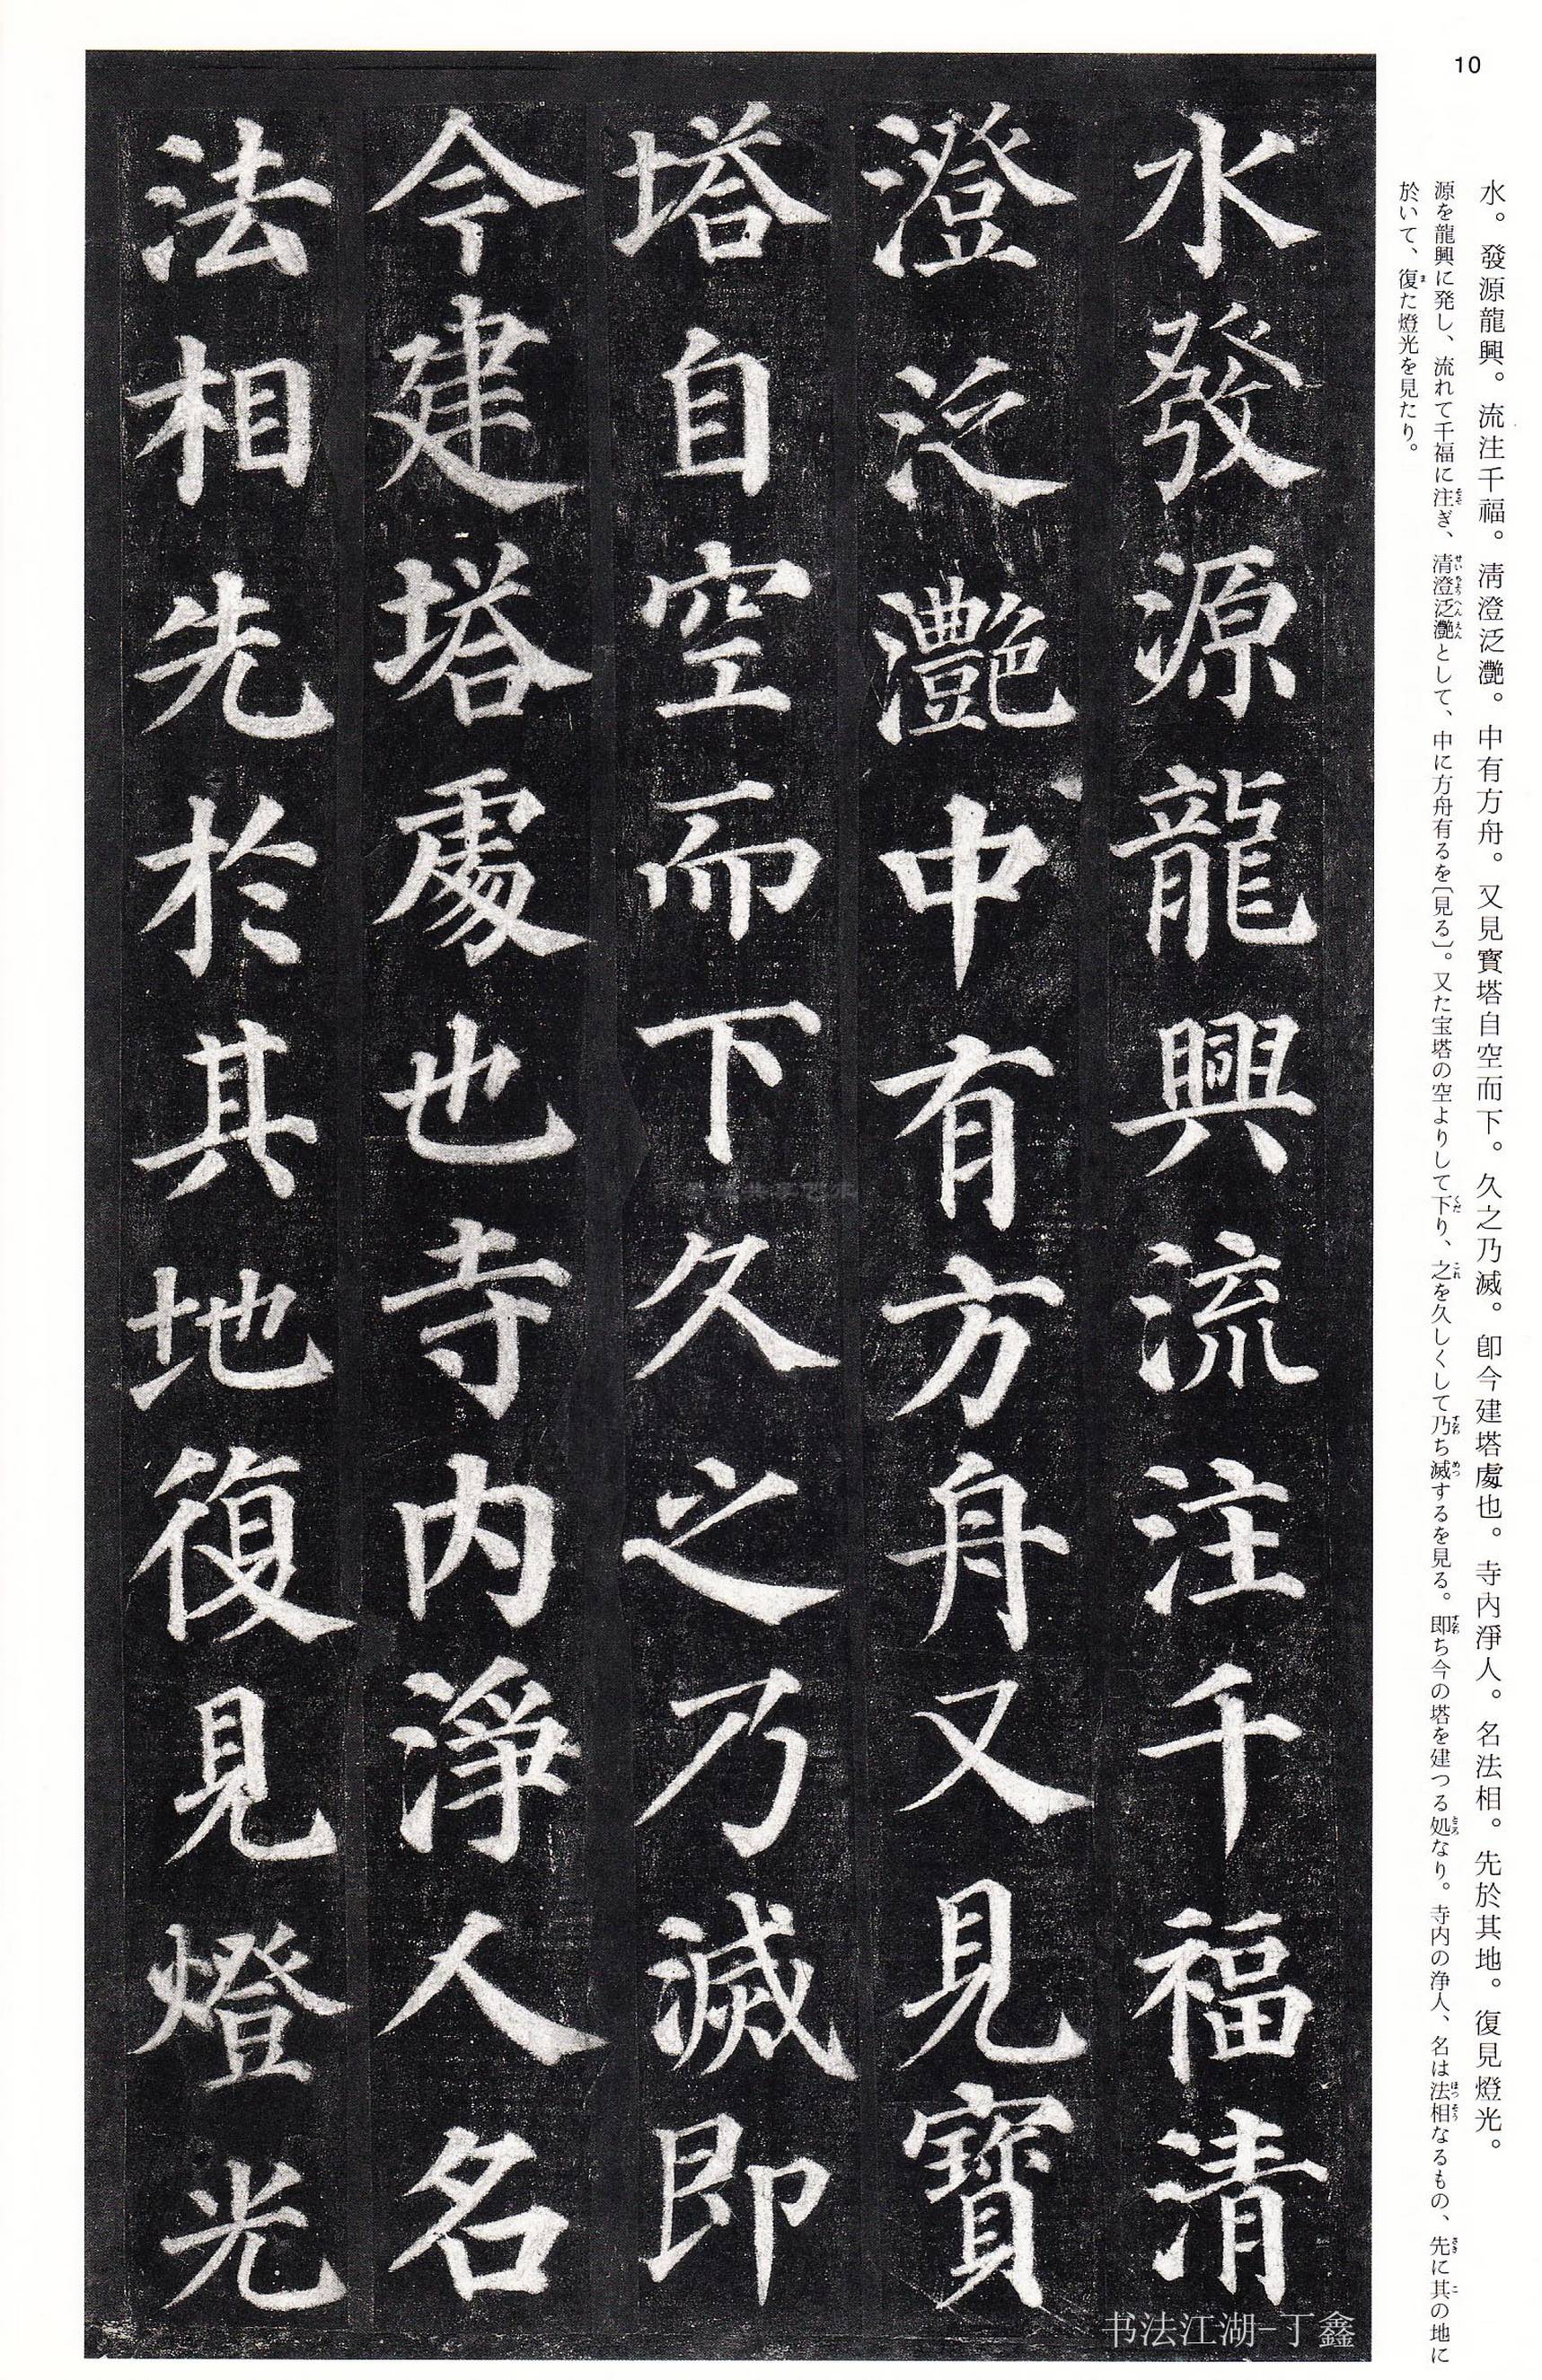 10
水。發源龍興。流注千福。淸澄泛灔。中有方舟。又見寳塔自空而下。久之乃滅。卽今建塔處也。寺內淨人。名法相。先於其地。復見燈光。
源を龍興に発し、流れて千福に注ぎ、清澄泛灔として、中に方舟有るを〔見る〕。又た宝塔の空よりして下り、之を久しくして乃ち滅するを見る。即ち今の塔を建つる処なり。寺内の浄人、名は法相なるもの、先に其の地に
於いて、復た燈光を見たり。
水發源龍興流注千福清
澄泛灔中有方舟又見寳
塔自空而下久之乃滅即
今建塔處也寺内淨人名
法相先於其地復見燈光
书法江湖-丁鑫